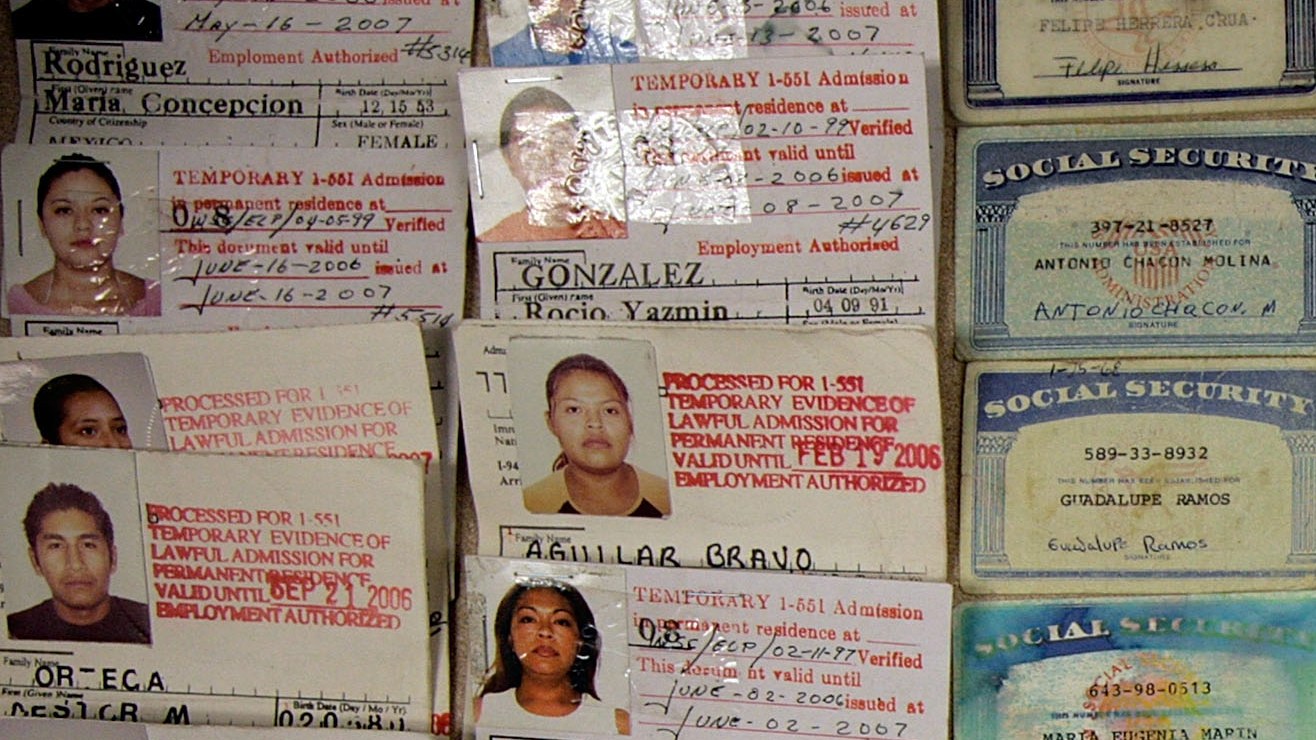 issued at
MAY-16-2007
#5314
Emploment Authorized
Family Name
Rodriguez
First (Given) name
Maria Concepcion
Birth Date (Day/Mo/Yr)
12, 15 53
Country of Citizenship
Sex (Male or Female)
MEXICO
FEMALE
TEMPORARY 1-551 Admission
in permanent residence at
/ELP/04-05-99 Verified
This document valid until
JUNE-16-2006 issued at
JUNE-16-2007
#5514
Family Name
PROCESSED FOR 1-551
TEMPORARY EVIDENCE OF
LAWFUL ADMISSION FOR
PERMANENT RESIDENCE
PROCESSED FOR 1-551
TEMPORARY EVIDENCE OF
LAWFUL ADMISSION FOR
PERMANENT RESIDENCE
VALID UNTIL SEP 21 2006
EMPLOYMENT AUTHORIZED
Family Name
First (Given) Name
Birth Date (Day / Mo / Yr)
2006 issued at
13-2007
TEMPORARY 1-551 Admission
in permanent residence at
/02-10-99 Verified
valid until
2006 issued at
08-2007
#4629
Employment Authorized
Family Name
GONZALEZ
First (Given) name
Rocio Yazmin
Birth Date (Day/Mo/Yr)
04 09 91
PROCESSED FOR 1-551
TEMPORARY EVIDENCE OF
LAWFUL ADMISSION FOR
PERMANENT RESIDENCE
VALID UNTIL FEB 19 2006
EMPLOYMENT AUTHORIZED
Family Name
AGUILAR BRAVO
TEMPORARY 1-551 Admission
in permanent residence at
/ELP/02-11-97 Verified
This document valid until
JUNE-02-2006 issued at
JUNE-02-2007
FELIPE HERRERA CRUZ
SIGNATURE
SOCIAL SECURITY
397-21-8527
THIS NUMBER HAS BEEN ESTABLISHED FOR
ANTONIO CHACON MOLINA
ADMINISTRATION
ANTONIO CHACON. M
SIGNATURE
SOCIAL SECURITY
589-33-8932
THIS NUMBER HAS BEEN ESTABLISHED FOR
GUADALUPE RAMOS
Guadalupe Ramos
SIGNATURE
SOCIAL SECURITY
643-98-0513
MARIA EUGENIA MARIN